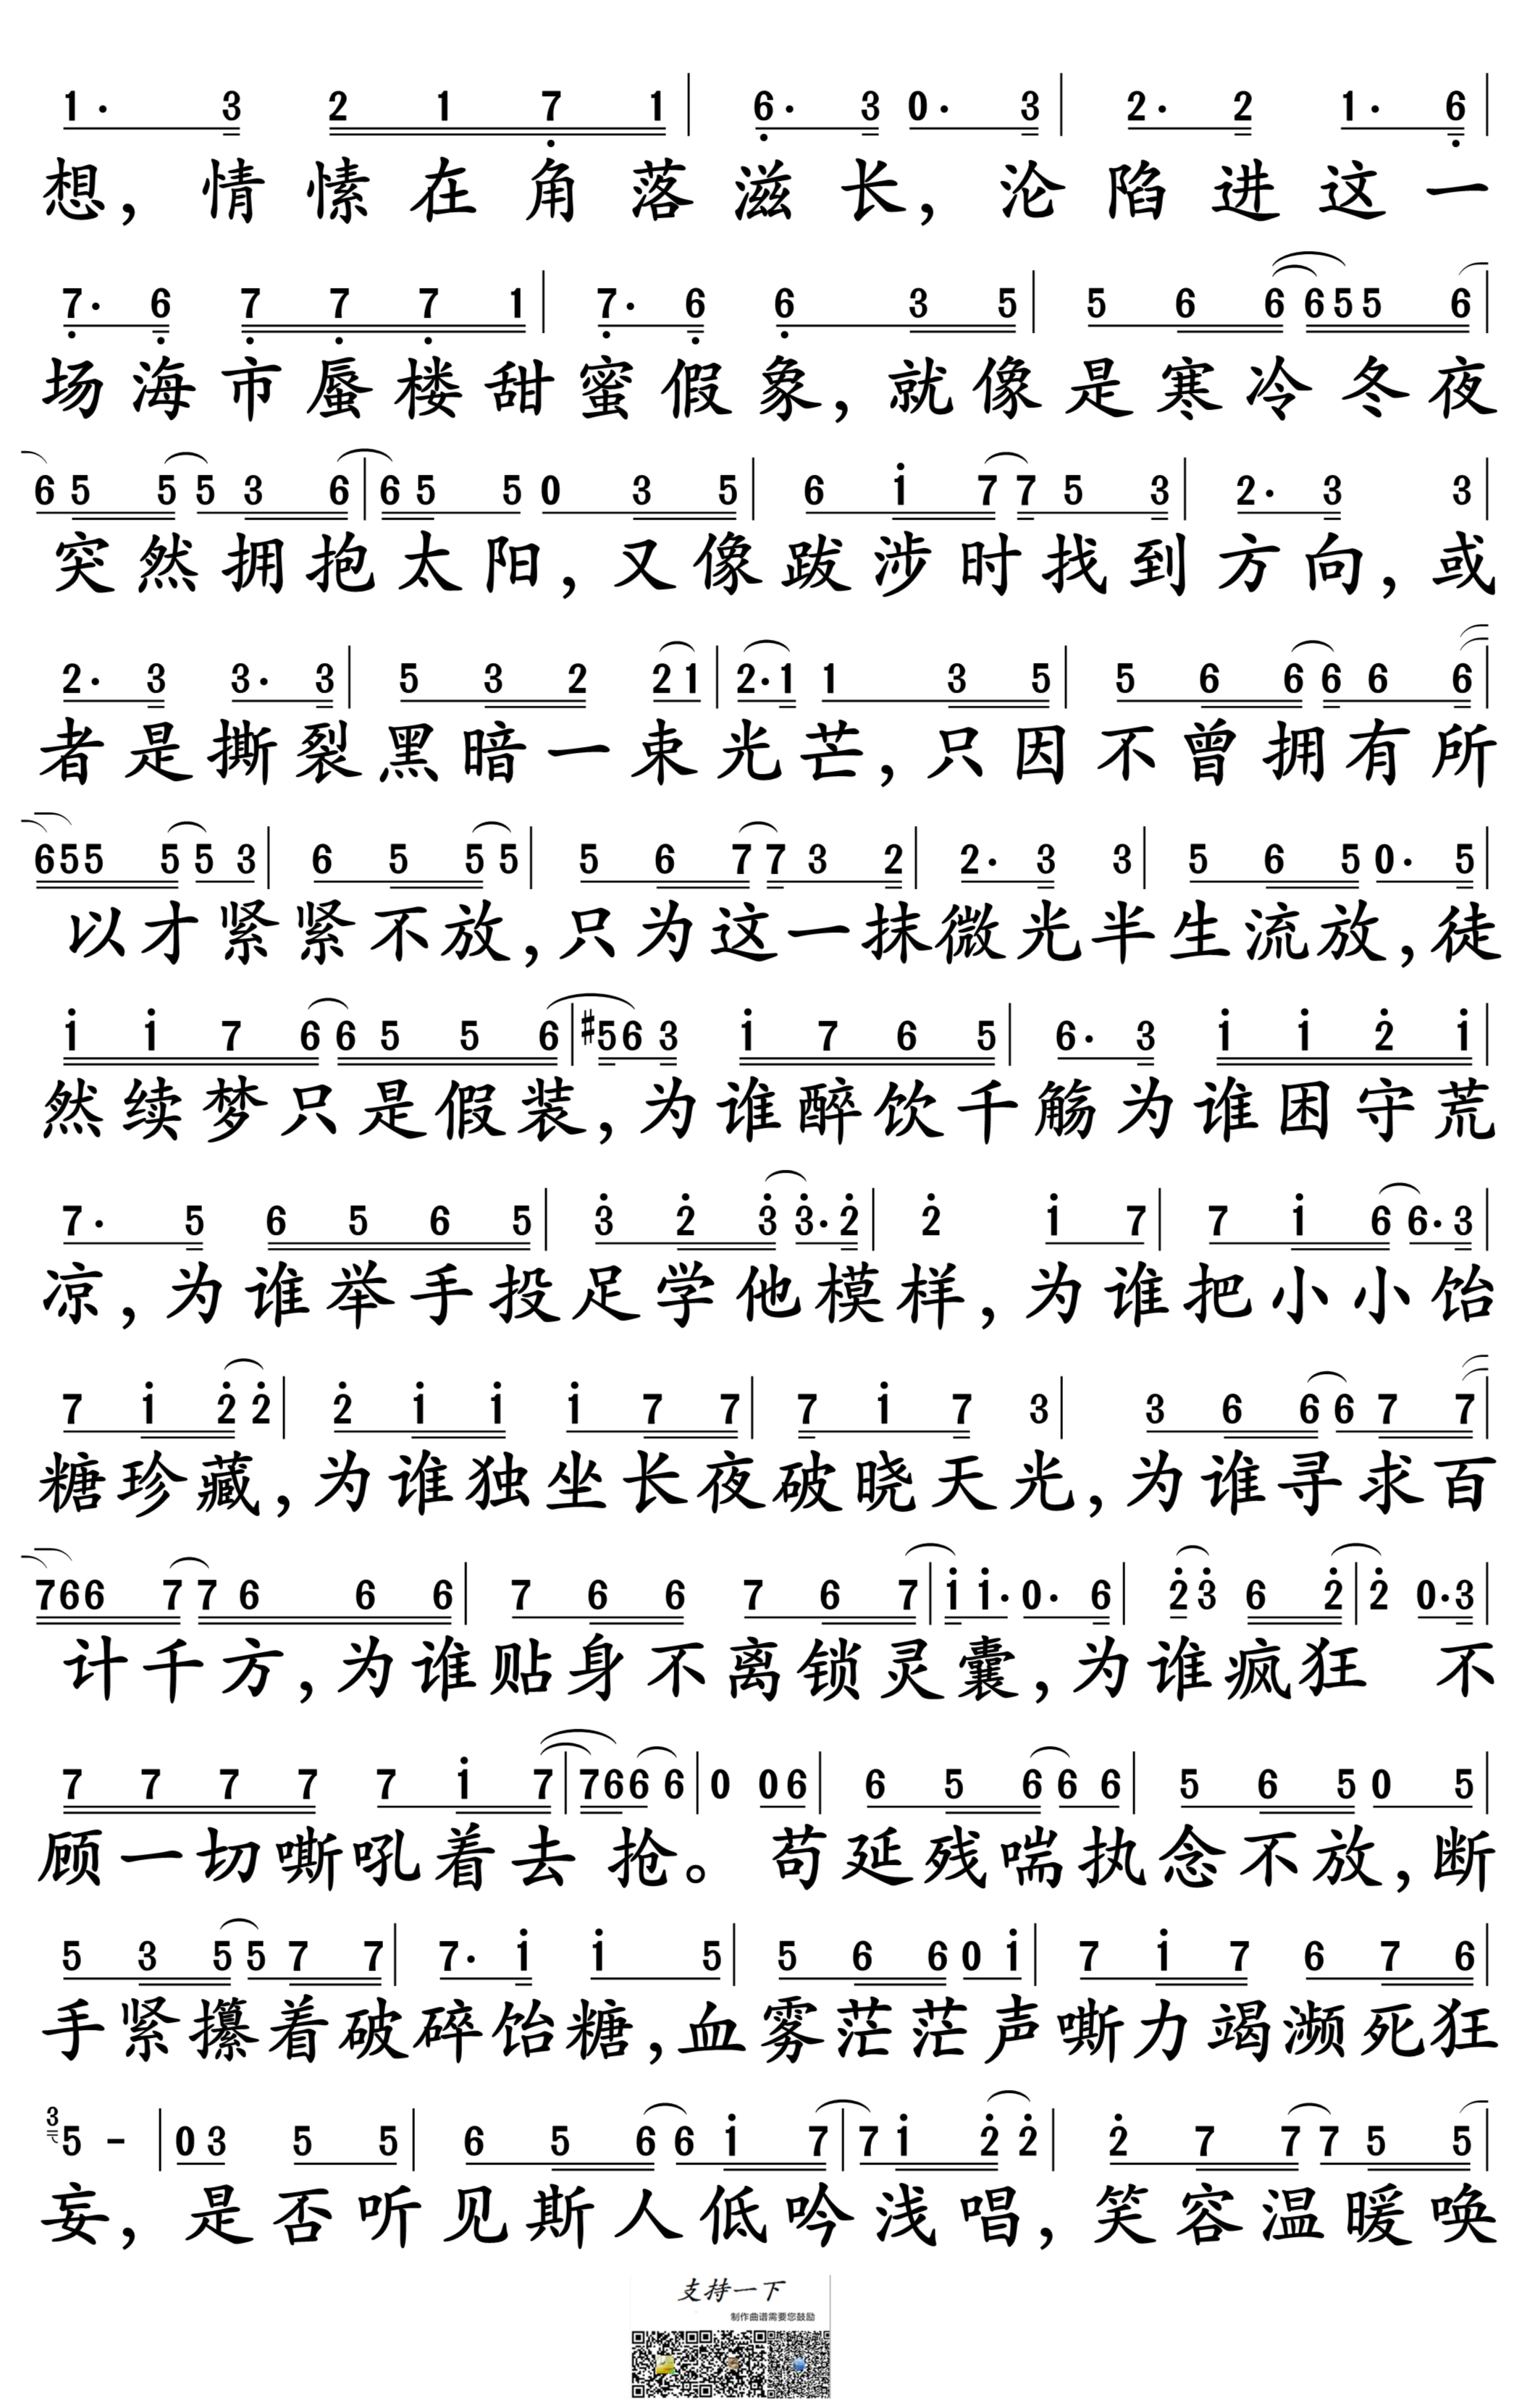 1· 3 2 1 7 1 | 6· 3 0· 3 | 2· 2 1· 6 |
想，情愫在角落滋长，沦陷进这一
7· 6 7 7 7 1 | 7· 6 6 3 5 | 5 6 6 6 5 5 6 |
场海市蜃楼甜蜜假象，就像是寒冷冬夜
6 5 5 5 3 6 | 6 5 5 0 3 5 | 6 i 7 7 5 3 | 2· 3 3 |
突然拥抱太阳，又像跋涉时找到方向，或
2· 3 3· 3 | 5 3 2 2 1 | 2· 1 1 3 5 | 5 6 6 6 6 6 |
者是撕裂黑暗一束光芒，只因不曾拥有所
6 5 5 5 5 3 | 6 5 5 5 | 5 6 7 7 3 2 | 2· 3 3 | 5 6 5 0· 5 |
以才紧紧不放，只为这一抹微光半生流放，徒
i i 7 6 6 5 5 6 | #5 6 3 i 7 6 5 | 6· 3 i i 2̇ i |
然续梦只是假装，为谁醉饮千觞为谁困守荒
7· 5 6 5 6 5 | 3̇ 2̇ 3̇ 3̇· 2̇ | 2̇ i 7 | 7 i 6 6· 3 |
凉，为谁举手投足学他模样，为谁把小小饴
7 i 2̇ 2̇ | 2̇ i i i 7 7 | 7 i 7 3 | 3 6 6 6 7 7 |
糖珍藏，为谁独坐长夜破晓天光，为谁寻求百
7 6 6 7 7 6 6 6 | 7 6 6 7 6 7 | i i· 0· 6 | 2̇ 3̇ 6 2̇ | 2̇ 0· 3 |
计千方，为谁贴身不离锁灵囊，为谁疯狂 不
7 7 7 7 7 i 7 | 7 6 6 6 | 0 0 6 | 6 5 6 6 6 | 5 6 5 0 5 |
顾一切嘶吼着去 抢。 苟延残喘执念不放，断
5 3 5 5 7 7 | 7· i i 5 | 5 6 6 0 i | 7 i 7 6 7 6 |
手紧攥着破碎饴糖，血雾茫茫声嘶力竭濒死狂
3 5 - | 0 3 5 5 | 6 5 6 6 i 7 | 7 i 2̇ 2̇ | 2̇ 7 7 7 5 5 |
妄，是否听见斯人低吟浅唱，笑容温暖唤
支持一下
制作曲谱需要您鼓励